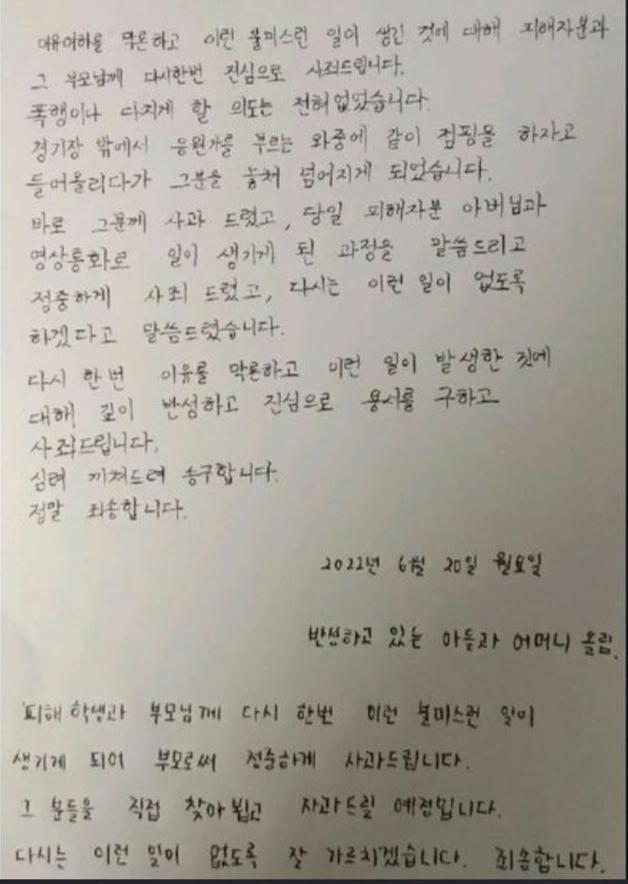 이유여하를 막론하고 이런 불미스런 일이 생긴 것에 대해 피해자분과
그 부모님께 다시한번 진심으로 사죄드립니다.
폭행이나 다치게 할 의도는 전혀없었습니다.
경기장 밖에서 응원가를 부르는 와중에 같이 점핑을 하자고
들어올리다가 그분을 놓쳐 넘어지게 되었습니다.
바로 그분께 사과 드렸고, 당일 피해자분 아버님과
영상통화로 일이 생기게 된 과정을 말씀드리고
정중하게 사죄 드렸고, 다시는 이런 일이 없도록
하겠다고 말씀드렸습니다.
다시 한번 이유를 막론하고 이런 일이 발생한 것에
대해 깊이 반성하고 진심으로 용서를 구하고
사죄드립니다.
심려 끼쳐드려 송구합니다.
정말 죄송합니다.
2022년 6월 20일 월요일
반성하고 있는 아들과 어머니 올림.
피해 학생과 부모님께 다시 한번 이런 불미스런 일이
생기게 되어 부모로써 정중하게 사과드립니다.
그 분들을 직접 찾아뵙고 사과드릴 예정입니다.
다시는 이런 일이 없도록 잘 가르치겠습니다. 죄송합니다.